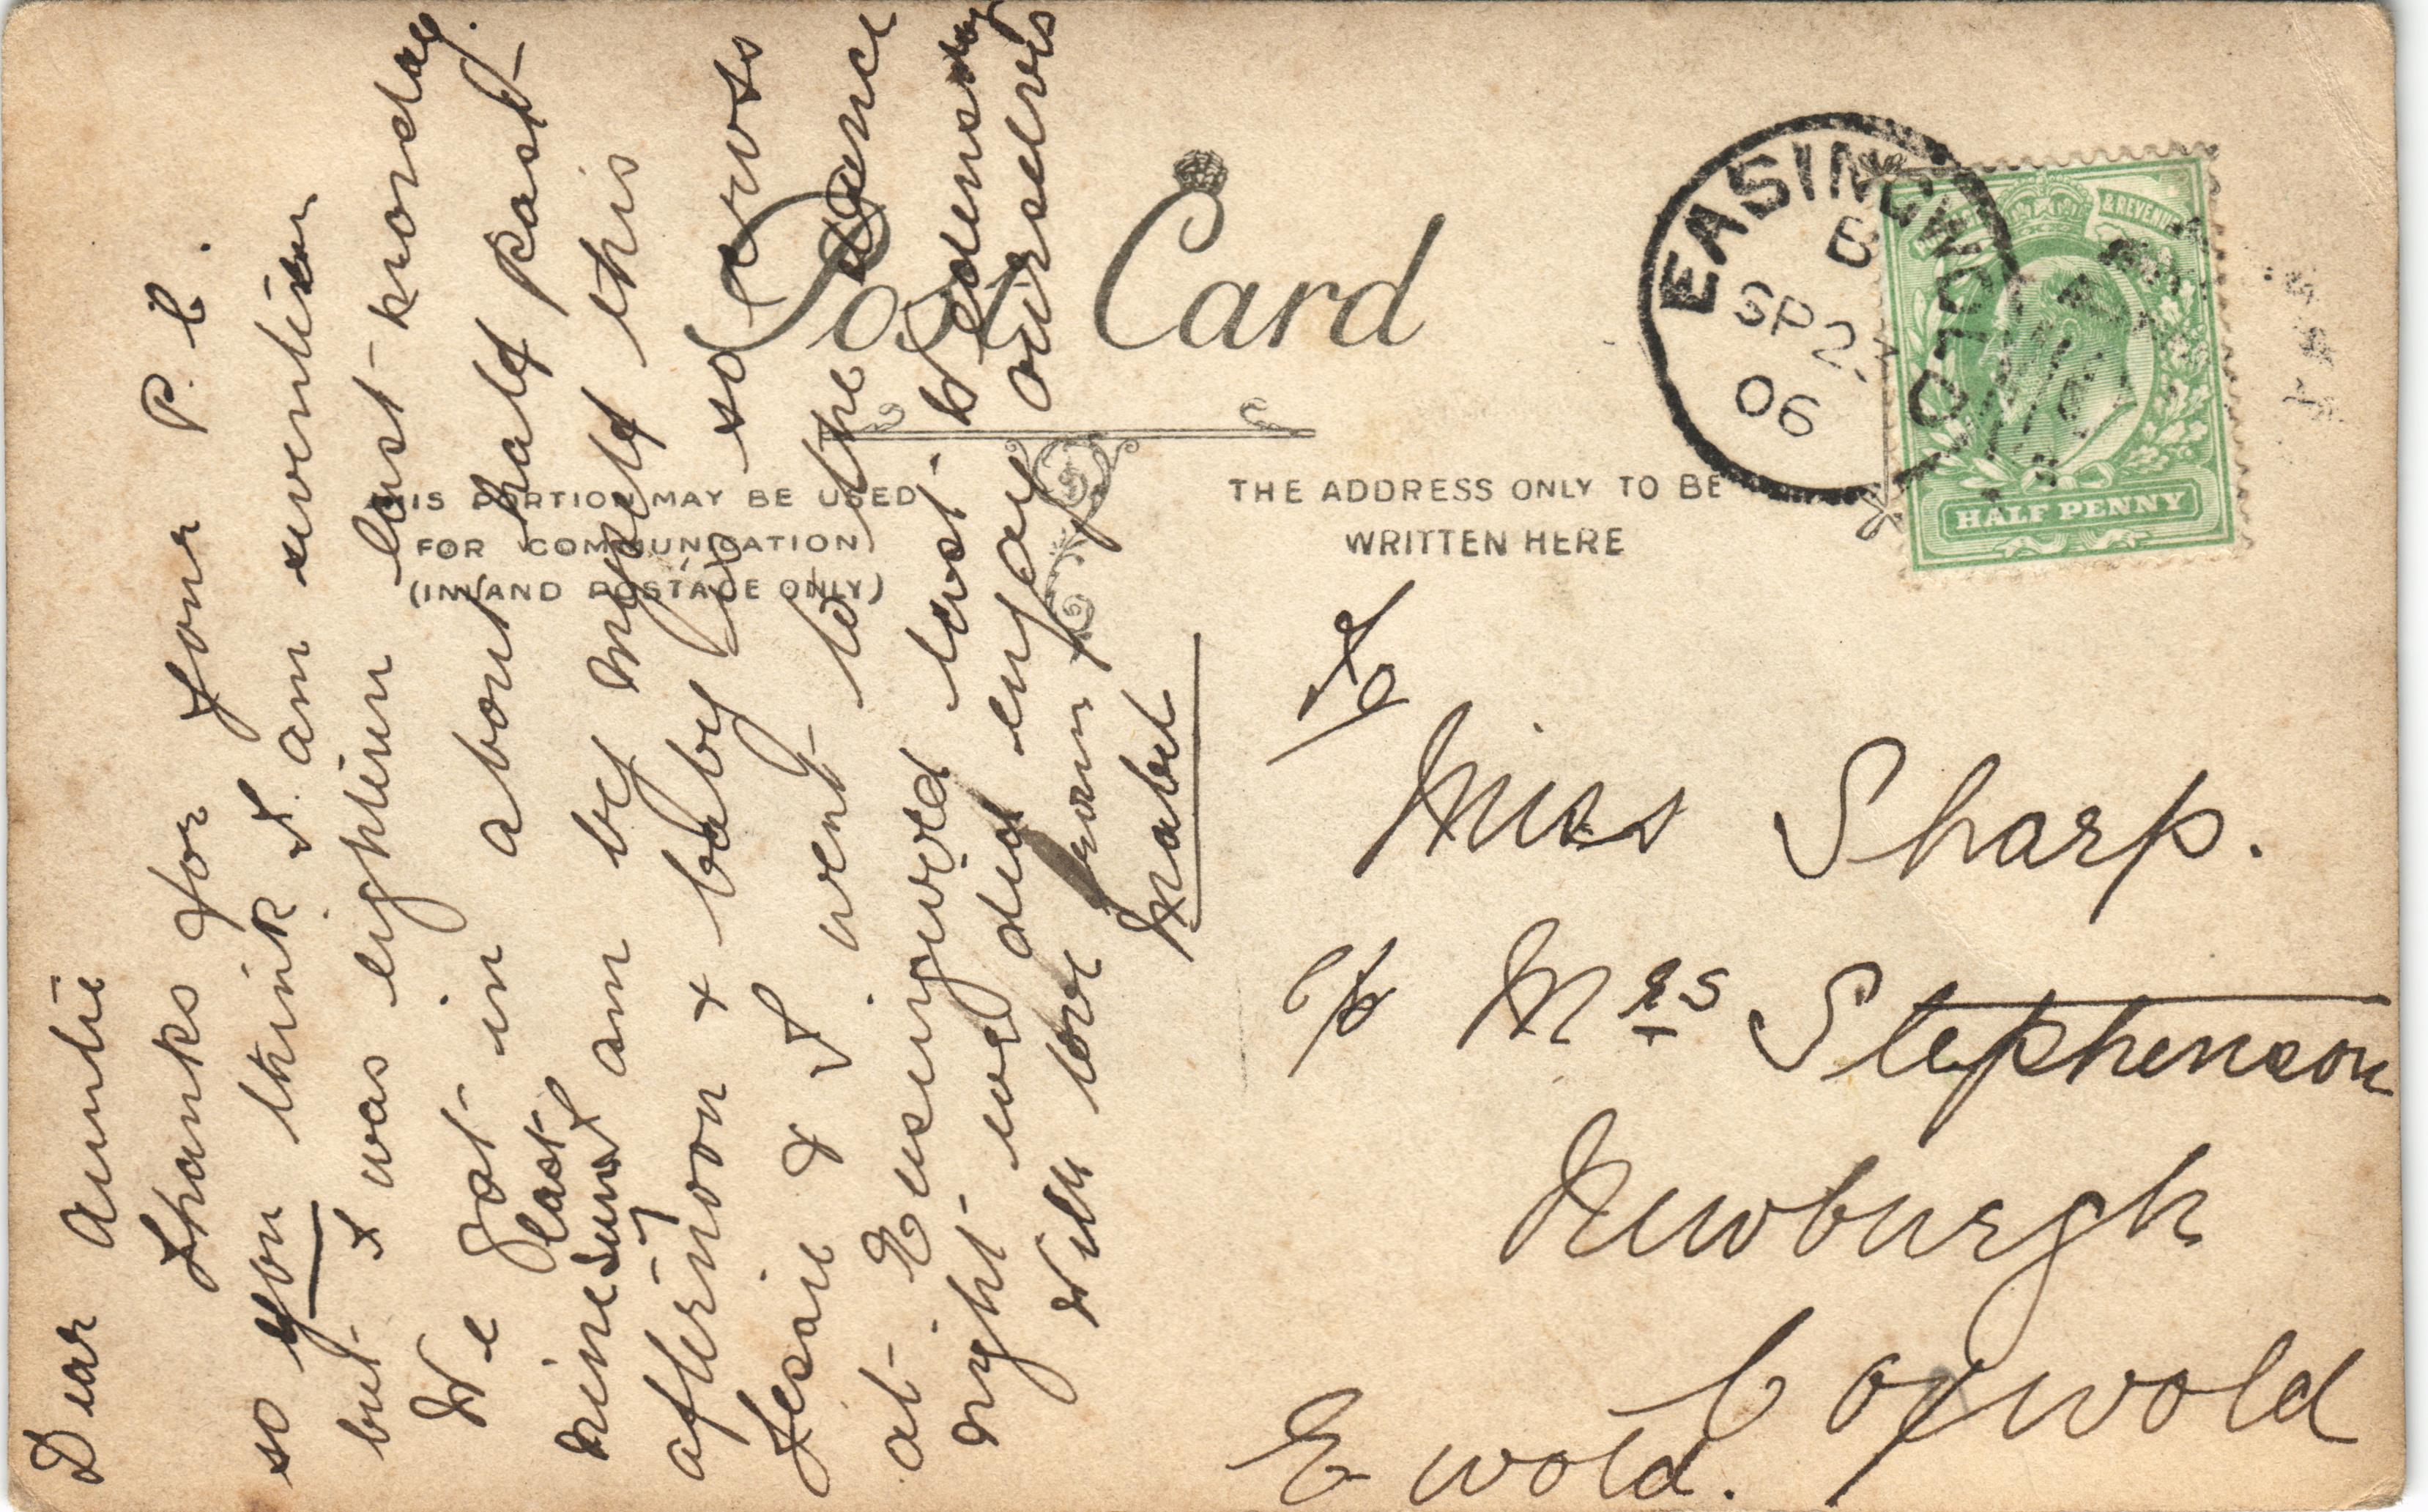 Post Card
THIS PORTION MAY BE USED
FOR COMMUNICATION
(INLAND POSTAGE ONLY)
THE ADDRESS ONLY TO BE
WRITTEN HERE
EASINGWOLD
B
SP 2
06
& REVENUE
HALF PENNY
Dear Auntie
Thanks for your P.C.
so you think I am seventeen
but I was eighteen last monday.
We got in about half past
nine last Sunday I am by myself this
afternoon & baby is so cross
Jessie & I went to the dance
at Easingwold last Wednesday
night we did enjoy ourselves
With love from
Mabel
To
Miss Sharp.
c/o Mrs Stephenson
Newburgh
Coxwold
E wold.